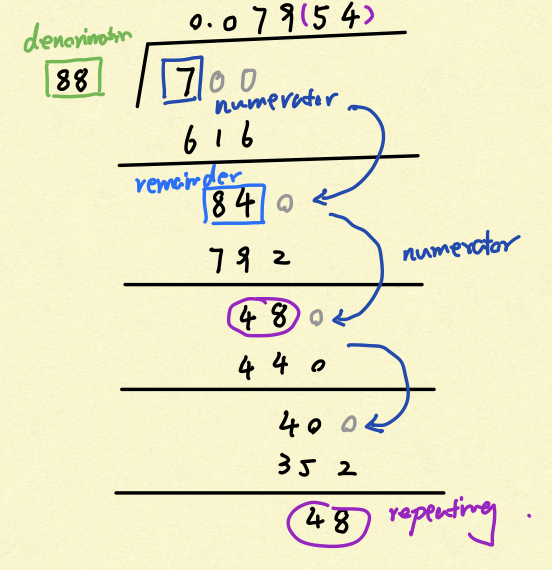 0.079(54)
denominator
88 700
numerator
616
remainder
840
792
numerator
480
440
400
352
48 repeating.